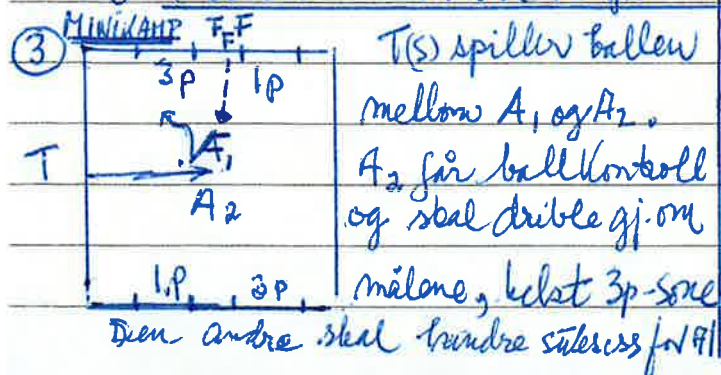 ③ MINIKAMP F F F T(S) spiller ballen
3P 1P mellom A1 og A2.
T A1 A2 får ballkontroll
A2 og skal drible gj.om
1.P 3P målene, helst 3p-sone
Den andre skal hindre suksess for A1